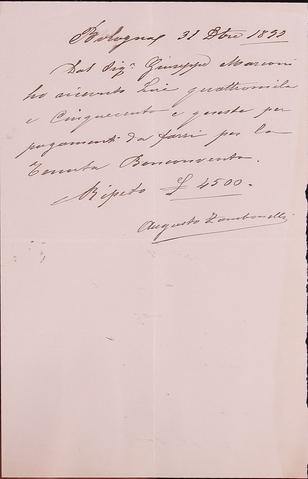 Bologna 31 Xbre 1890
Dal Sig. Giuseppe Marconi
ho ricevuto Lire quattromila
e Cinquecento e queste per
pagamenti da farsi per la
Tenuta Benvenuta.
Ripeto £ 4500.
Augusto Zambonelli